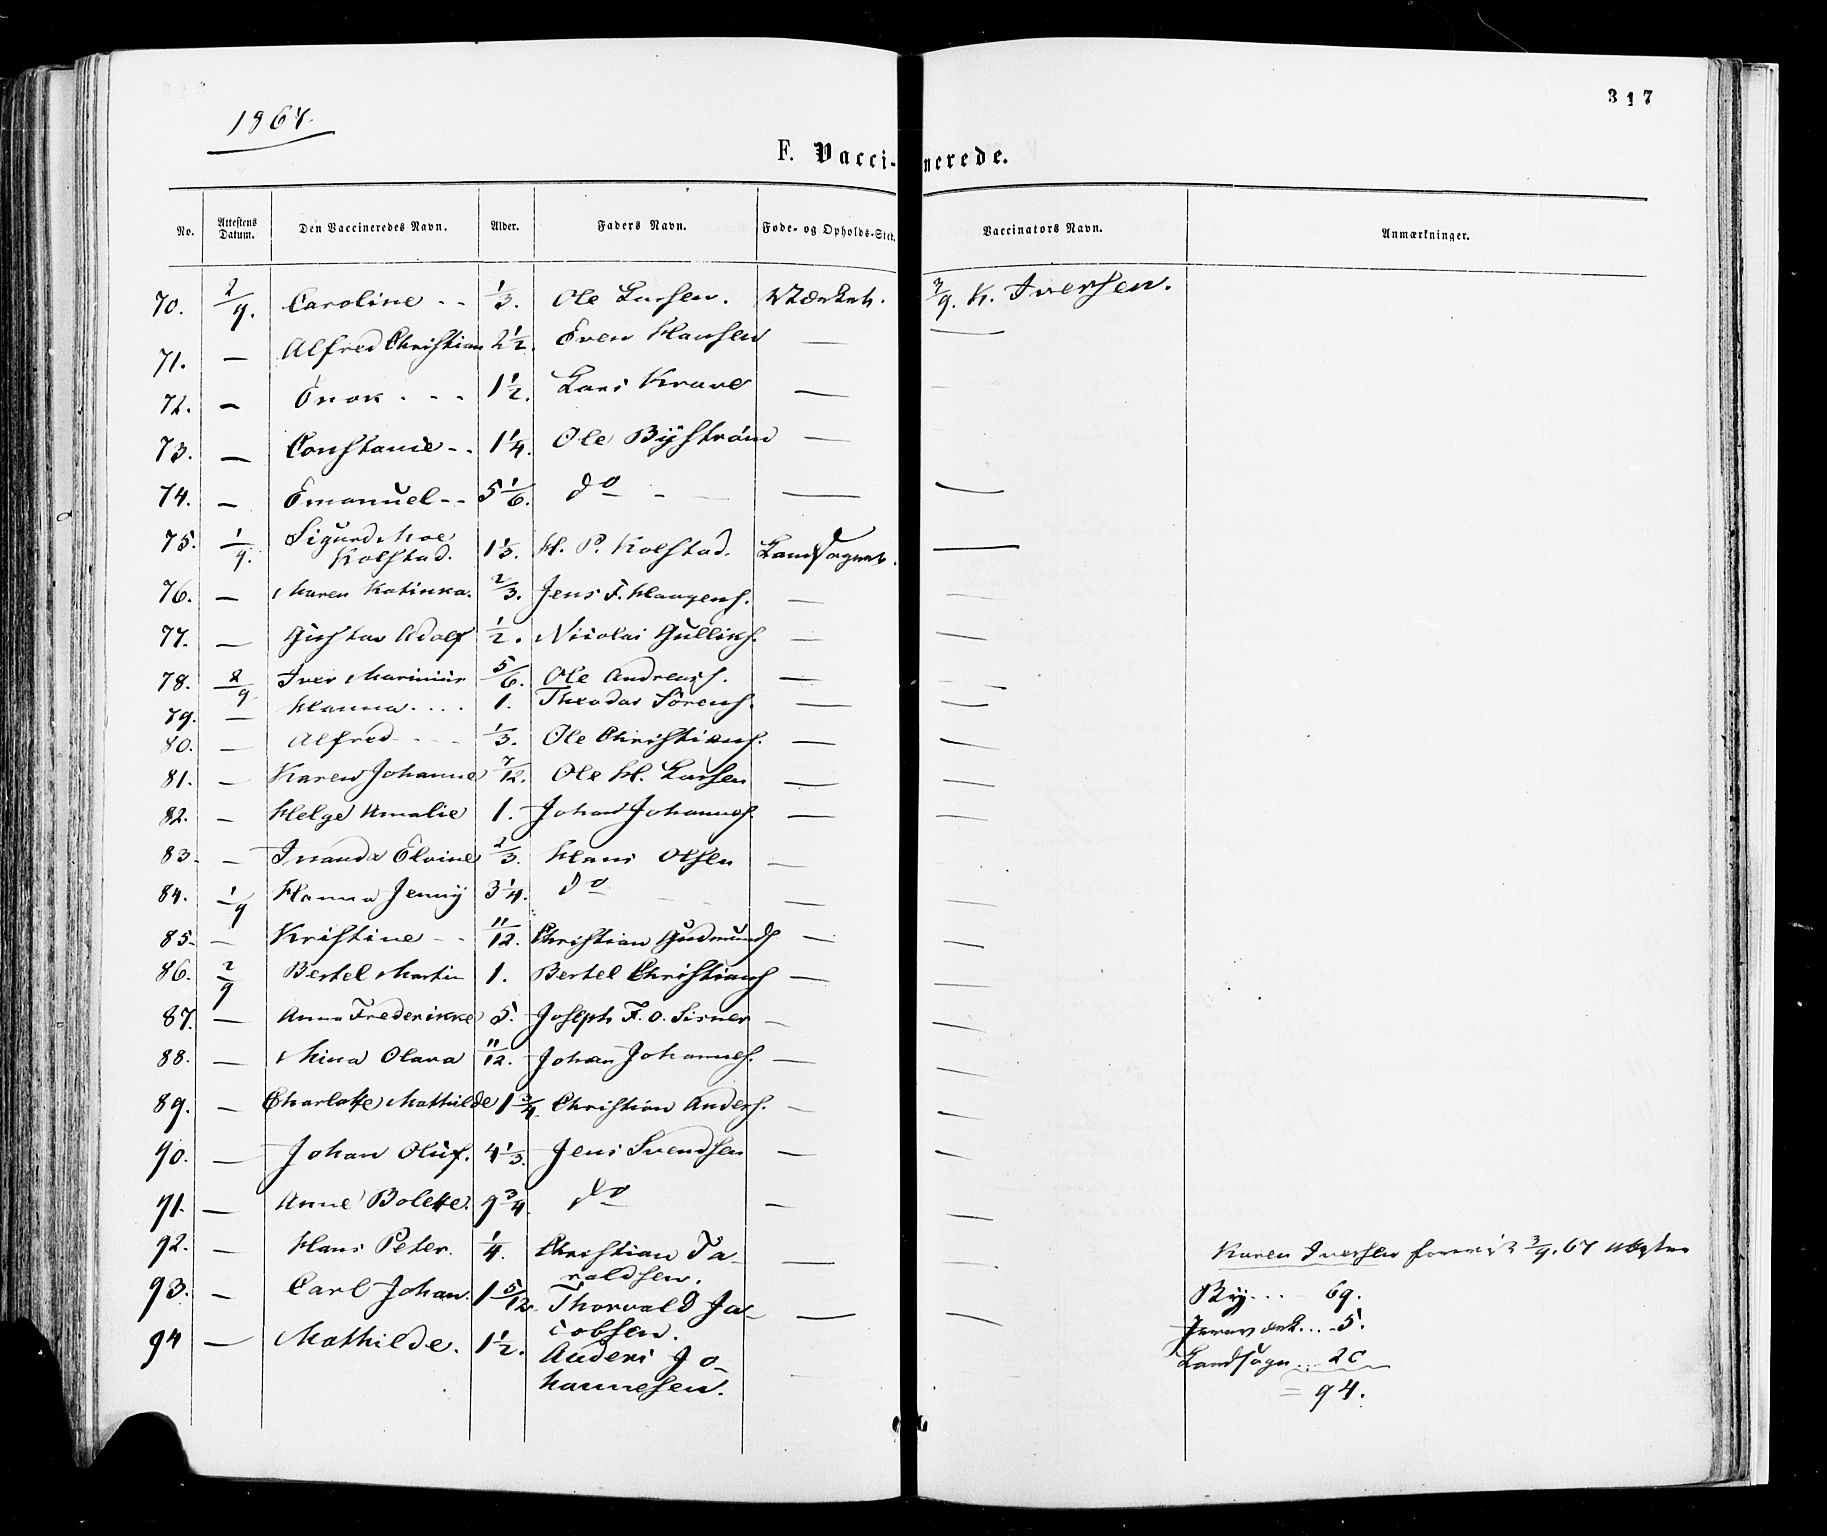 317
1867.
F. Vaccinerede.
No. Attestens Datum. Den Vaccineredes Navn. Alder. Faders Navn. Føde- og Opholds-Sted. Vaccinators Navn. Anmærkninger.
70. 2/9. Caroline - - 1/3. Ole Larsen. Værket. 3/9. K. Iversen.
71. — Alfred Christian 2 1/2. Even Hansen — —
72. — Enok - - - 1 1/2. Lars Krave — —
73. — Constance - - 1 1/4. Ole Byström —
74. — Emanuel - - 5 1/6. do - — —
75. 1/9. Sigurd Moe Kolstad. 1 1/3. H. P. Kolstad. Landsognet. —
76. — Maren Katinka. 2/3. Jens F. Haagens. — —
77. — Gustav Adolf 1/2. Nicolai Gulliks. — —
78. 2/9 Iver Marinius 5/6. Ole Andreas. — —
79. — Hanna . . . . 1. Theodor Sørens. — —
80. — Alfred - - - 1/3. Ole Christians. — —
81. — Karen Johanne 7/12. Ole H. Larsen — —
82. — Helge Amalie 1. Johan Johannes. — —
83. — Inanda Elvine 2/3. Hans Olsen — —
84. 1/9 Hanna Jenny 3 1/4. do — —
85. — Kristine - - 11/12. Christian Gudmunds — —
86. 2/9 Bertel Martin 1. Bertel Christians — —
87. — Anna Frederikke 5. Joseph F. O. — —
88. — Mina Olava 11/12. Johan Johannes. — —
89. — Charlotte Mathilde 1 3/4. Christian Anders. — —
90. — Johan Oluf. 4 1/3. Jens Svendsen — —
91. — Anne Bolette. 9 3/4. do — —
92. — Hans Peter. 1/4. Christian Taraldsen. — — Karen Iversen 3/9. 67
93. — Carl Johan. 1 5/12. Thorvald Jacobsen. — —
94 — Mathilde. 1 1/2. Anders Johannesen. — —
By . . . . 69.
. . . 5.
Landsogn . . . 20
= 94.